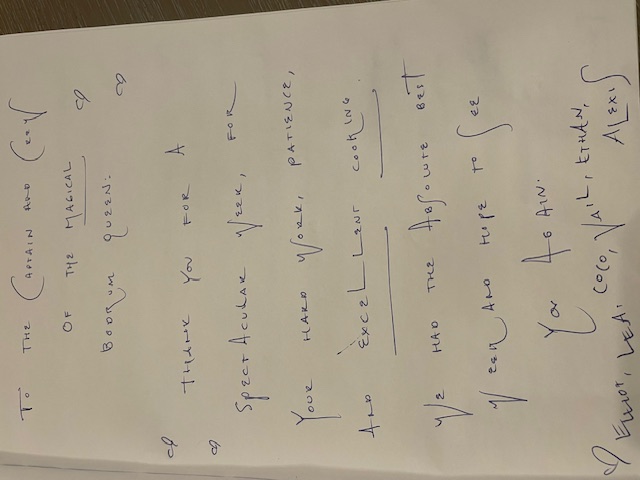 TO THE CAPTAIN AND CREW
OF THE MAGICAL
BODRUM QUEEN:
THANK YOU FOR A
SPECTACULAR WEEK, FOR
YOUR HARD WORK, PATIENCE,
AND EXCELLENT COOKING.
WE HAD THE ABSOLUTE BEST
WEEK AND HOPE TO SEE
YOU AGAIN.
ELLIOT, LEA, COCO, VAIL, ETHAN,
ALEXIS